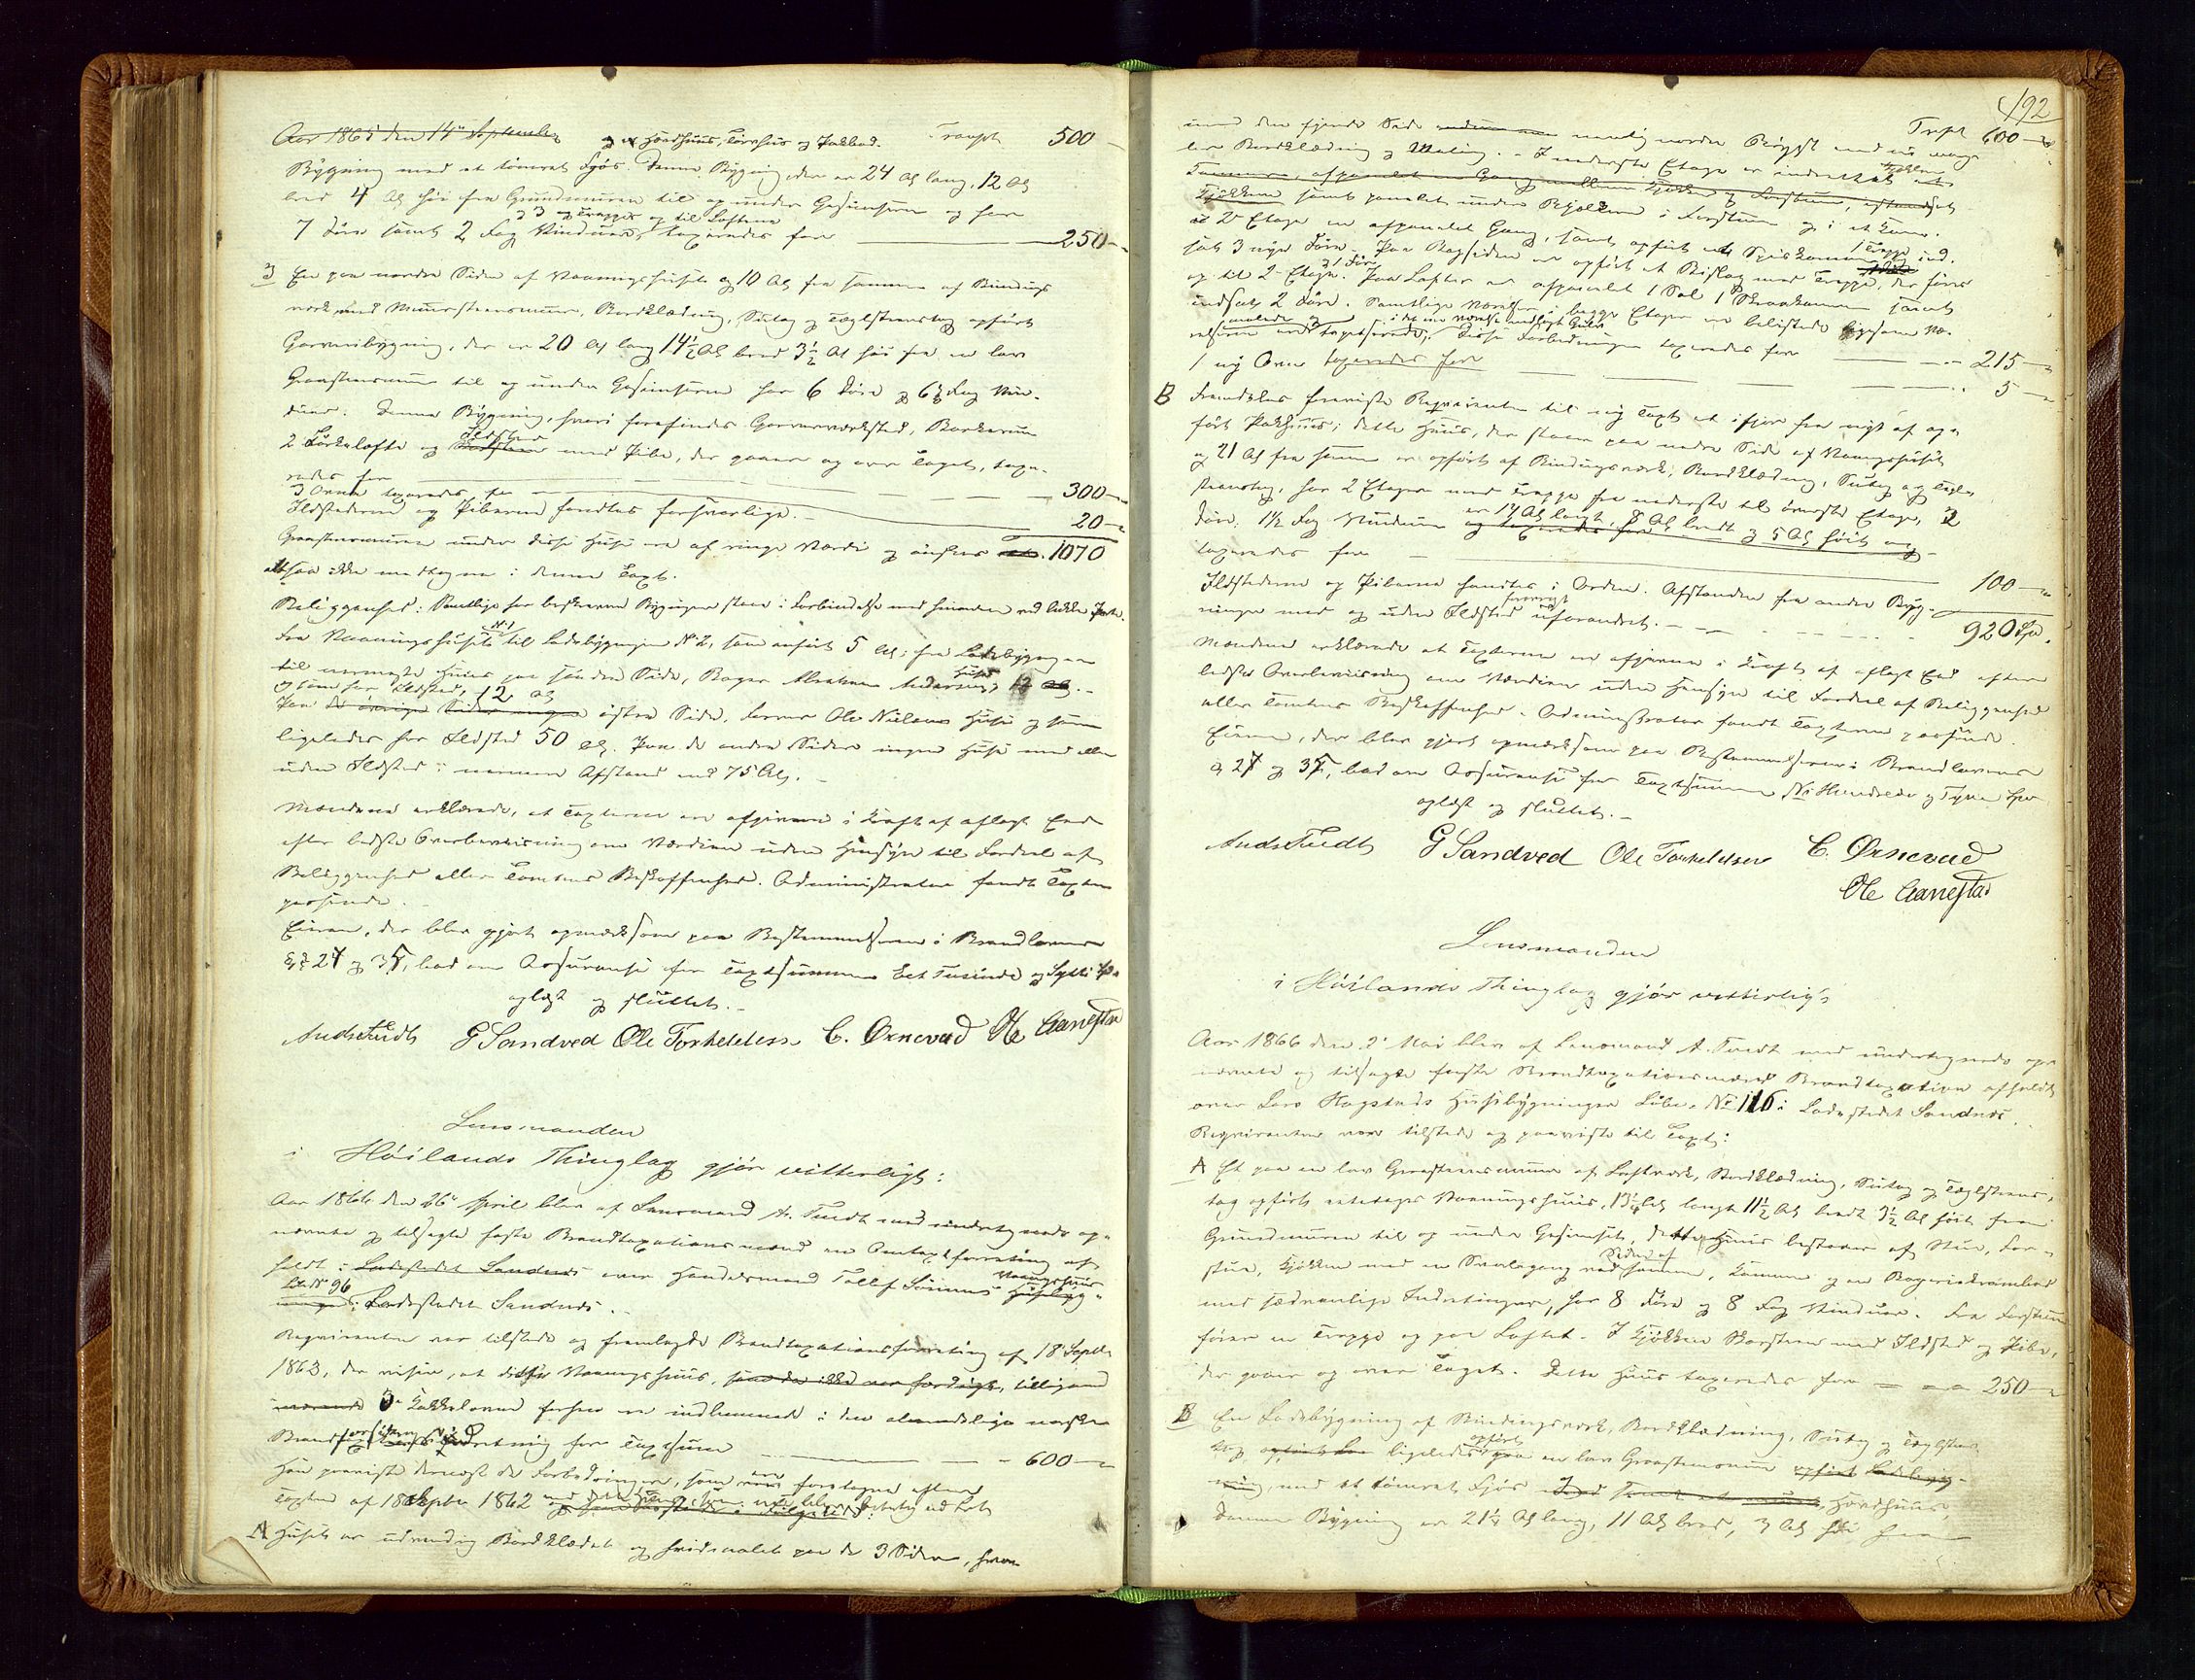 Aar 1865 den 14de September og et Hørdhuus, Tørvhuus og Pakbod. Transpt 500
Bygning med et tømret Fjøs. Denne Bygning, der er 24 Al lang, 12 Al
bred 4 Al høi fra Grundmuren til og under Gesimsen og har
og 3 Trapper og til Lofterne
7 Døre samt 2 Fag Vinduer, taxeredes for 250
3 En paa nordre Siden af Vaaningshuset og 10 Al fra samme af Bindings
værk, med Muursteensmuur, Bordklædning, Sutag og Teglsteenstag opført
Garveribygning, der er 20 Al lang 14½ Al bred 3½ Al høi fra en lav
Graasteensmuur til og under Gesimsen har 6 Døre og 6½ Fag Vin-
duer. Denne Bygning, hvori forefindes Garverværksted, Barkerum
2 Tørkelofte og Ildsted med Pibe, der gaaer op over Taget, taxe-
redes for 300
3 Ovne taxeredes for 20
Ildstederne og Piberne fandtes forsvarlige.
Graasteensmuren under disse Huse ere af ringe Værdi og ansees 1070
altsaa ikke medtagne i denne Taxt.
Beliggenhed: Samtlige her beskrevne Bygninger staae i Forbindelse med hinanden ved lukkede Porte.
Fra Vaaningshuset No 1 til Ladebygningen No 2, som anført 5 Al; fra Ladebygningen
til nærmeste Huus paa søndre Side, Bager Abraham Andersens Huse
og som har Ildsted, 12 Al
Paa østre Side, Ole Nielsens Huse og som
ligeledes har Ildsted 50 Al. Paa de andre Sider ingen Huse med eller
uden Ildsted i nærmere Afstand end 75 Al.
Mændene erklærede, at Taxterne ere afgivne i Kraft af aflagt Eed
efter bedste Overbeviisning om Værdien uden Hensyn til Fordeel af
Beliggenhed eller Tomtens Beskaffenhed. Administrator fandt Taxterne
passende.
Eieren, der blev gjort opmærksom paa Bestemmelserne i Brandlovens
§§ 27 og 35, bad om Assurance for Taxtsummen Eet Tusinde og Sytti Spd
oplæst og sluttet.
Ands Tuedt G Sandved Ole Torkeldsen C. Ørnevad Ole Aanestad
Lensmanden
i Høilands Thinglag gjør vitterligt:
Aar 1866 den 26de April blev af Lensmand A. Tuedt med undertegnede op-
nævnte og tilsagte faste Brandtaxationsmænd en Omtaxtforretning af-
holdt i Ladestedet Sandnes over Handelsmand Tollef Vaaningshuus
Lb No 96 i Ladestedet Sandnæs.
Reqvirenten var tilstede og fremlagde Brandtaxationsforretning af 18 Septbr
1863, der viser, at dette Vaaningshuus, som da ikke var færdigt, tilligemed
3 Kakkelovne forhen er indlemmet i den almindelige norske
Brandforsikringsindretning for Taxtsum 600
Han paaviste dernæst de Forbedringer, som ere foretagne efter
Taxten af 18 Septbr 1862
A Huset er udvendig Bordklædt og hvidmalet paa de 3 Sider, hvor
192
imod den fjerde Side nemlig nordre Trpt 600
ler Bordklædning og Maling. I underste Etage er indrettet et
Kjøkken samt panelet under Bjælkerne i Forstuen og i et Kammer.
I 2den Etage en afpanelet Gang, samt opført et Spiskammer ind-
sat 3 nye Døre. Paa Bagsiden er opført et Bislag med Trappe, der fører
op til 2den Etage. Paa Loftet er afpanelet 1 Sal 1 Skorkammer samt
indsat 2 Døre. Samtlige Værelser i begge Etager ere belistede ligesom Væ-
relserne ere tapetserede. Disse Forbedringer taxeredes for 215
1 ny Ovn taxeredes for 5
B Fremdeles paaviste Reqvirenten til ny Taxt et ifjor fra nyt af op-
ført Pakhuus; dette Huus, der staaer paa nordre Side af Vaaningshuset
og 21 Al fra samme er opført af Bindingsværk, Bordklædning, Sutag og Tegl-
steenstag, har 2 Etager med Trappe fra nederste til øverste Etage, 2
Døre, 1½ Fag Vinduer er 14 Al langt, 8 Al bredt og 5 Al høit og
taxeredes for 100
Ildstederne og Piberne fandtes i Orden. Afstanden fra andre Byg-
ninger med og uden Ildsted forøvrigt uforandret. 920 Spd.
Mændene erklærede at Taxterne ere afgivne i Kraft af aflagt Eed efter
bedste Overbeviisning om Værdien uden Hensyn til Fordeel af Beliggenhed
eller Tomtens Beskaffenhed. Administrator fandt Taxterne passende.
Eieren, der blev gjort opmærksom paa Bestemmelserne i Brandlovens
§ 27 og 35, bad om Assurance for Taxtsummen Ni Hundrede og Tyve Spd
oplæst og sluttet.
Ands Tuedt G Sandved Ole Torkeldsen C. Ørnevad
Ole Aanestad
Lensmanden
i Høilands Thinglag gjør vitterligt
Aar 1866 den 2de Mai blev af Lensmand A. Tuedt med undertegnede op-
nævnte og tilsagte faste Brandtaxationsmænd Brandtaxation afholdt
over Lars Hogstads Huusbygninger Løbe No 116 i Ladestedet Sandnæs.
Reqvirenten var tilstede og paaviste til Taxt:
A Et paa en lav Graasteensmuur af Loftværk, Bordklædning, Sutag og Teglsteens-
tag opført eetetages Vaaningshuus, 13½ Al langt 11½ Al bredt 3½ Al høit fra
Grundmuren til og under Gesimset, dette Huus bestaaer af Stue, For-
stue, Kjøkken med en Svalegang ved Siden af samme, Kammer og en Bageriekrambod
med sædvanlige Indretninger, har 8 Døre og 8 Fag Vinduer. Fra Forstuen
fører en Trappe op paa Loftet. I Kjøkken Skorsteen med Ildsted og Pibe,
der gaaer op over Taget. Dette Huus taxeredes for 250
B En Ladebygning af Bindingsværk, Bordklædning, Sutag og Teglsteens-
tag ligeledes opført paa en lav Graasteensmuur
med et tømret Fjøs Hørdhuus,
Denne Bygning er 21½ Al lang, 11 Al bred, 3 Al høi fra